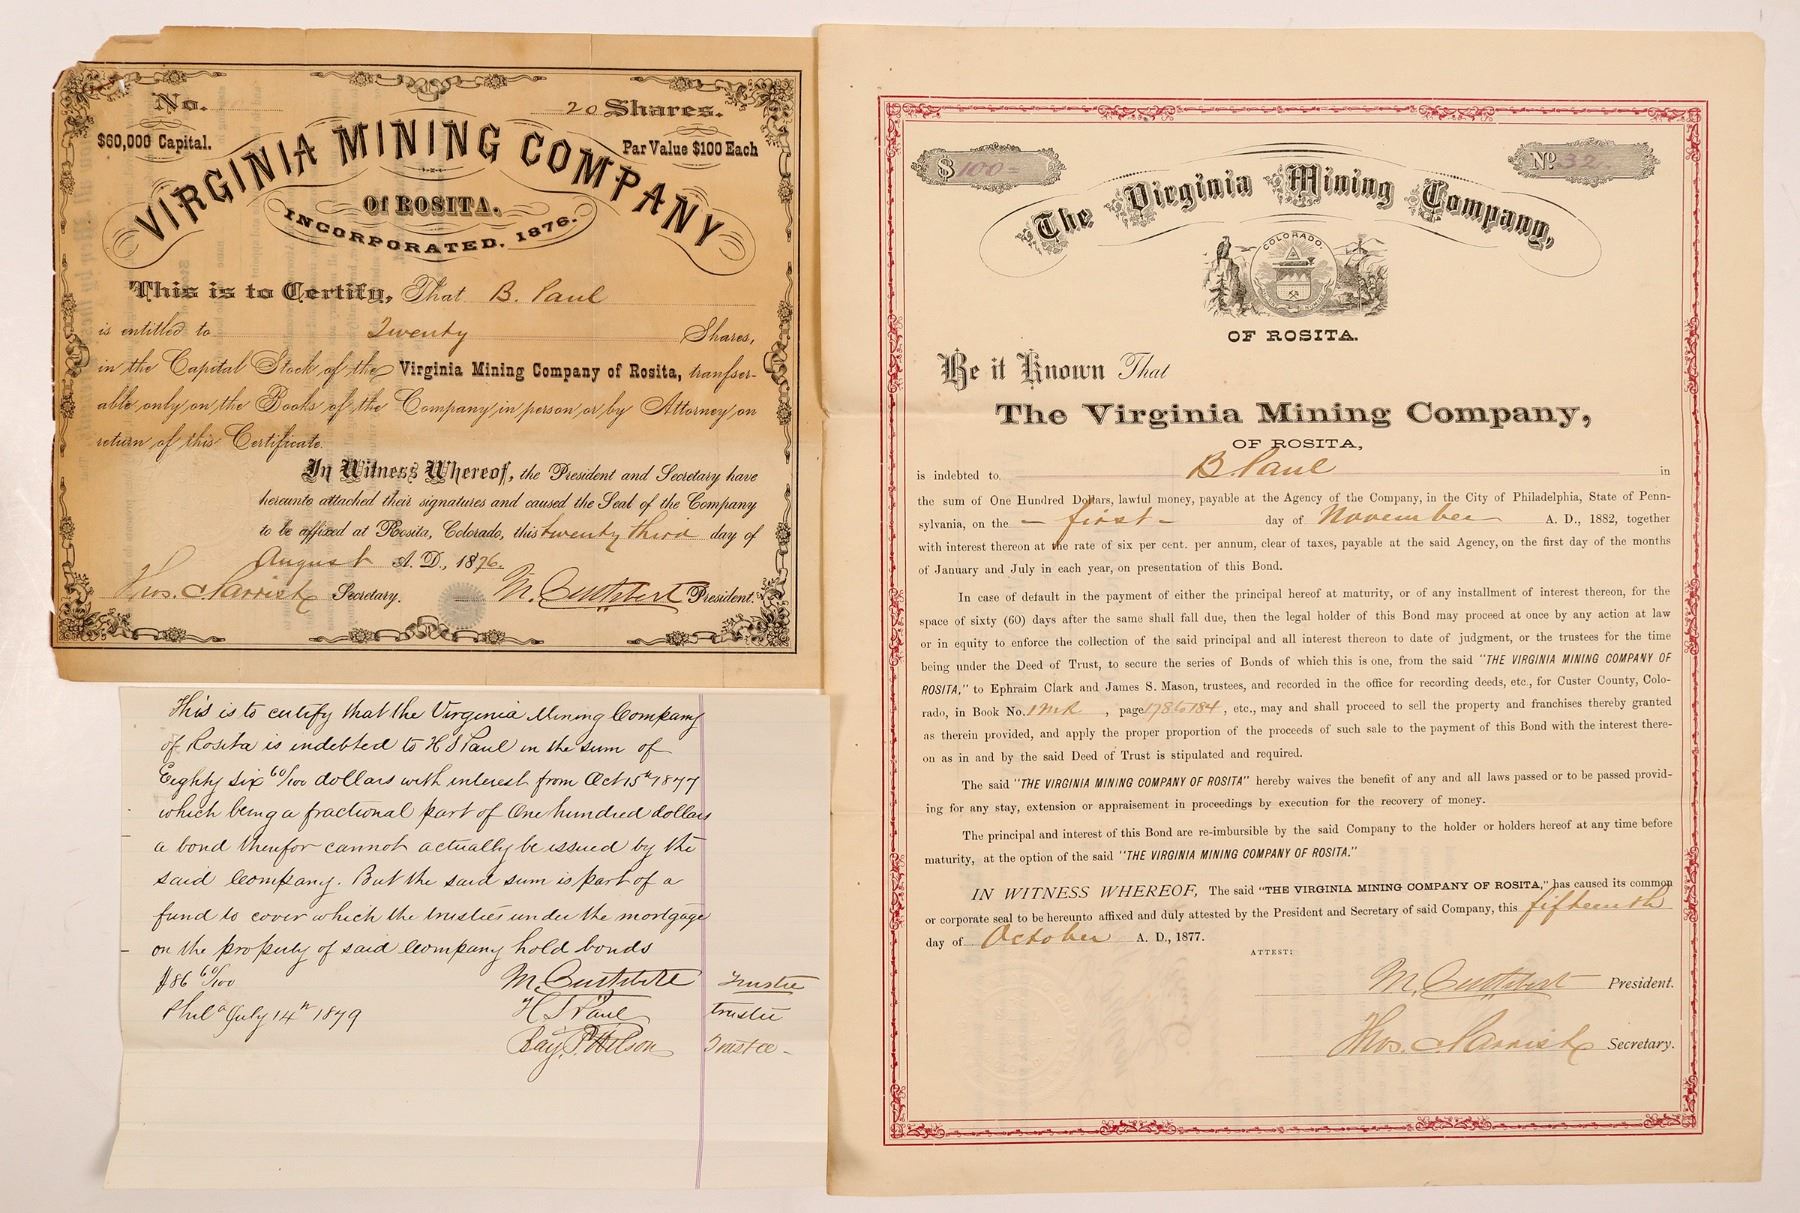 No.
20 Shares.
$60,000 Capital.
Par Value $100 Each
VIRGINIA MINING COMPANY
Of ROSITA.
INCORPORATED, 1876.
This is to Certify, That B. Paul
is entitled to Twenty Shares,
in the Capital Stock of the Virginia Mining Company of Rosita, transfer-
able only on the Books of the Company in person or by Attorney on
return of this Certificate.
In Witness Whereof, the President and Secretary have
hereunto attached their signatures and caused the Seal of the Company
to be affixed at Rosita, Colorado, this twenty third day of
August A.D., 1876.
Thos. Parrish Secretary. M. Cuthbert President.
This is to certify that the Virginia Mining Company
of Rosita is indebted to H S Paul in the sum of
Eighty six 60/100 dollars with interest from Oct 15th 1877
which being a fractional part of One hundred dollars
a bond therefor cannot actually be issued by the
said Company. But the said sum is part of a
fund to cover which the trustees under the mortgage
on the property of said Company hold bonds
$86 60/100 M. Cuthbert Trustee
Phila July 14th 1879 H S Paul trustee
Trustee
$100=
No. 32
The Virginia Mining Company,
COLORADO.
OF ROSITA.
Be it Known That
The Virginia Mining Company,
OF ROSITA,
is indebted to B. Paul in
the sum of One Hundred Dollars, lawful money, payable at the Agency of the Company, in the City of Philadelphia, State of Penn-
sylvania, on the - first - day of November A. D., 1882, together
with interest thereon at the rate of six per cent. per annum, clear of taxes, payable at the said Agency, on the first day of the months
of January and July in each year, on presentation of this Bond.
In case of default in the payment of either the principal hereof at maturity, or of any installment of interest thereon, for the
space of sixty (60) days after the same shall fall due, then the legal holder of this Bond may proceed at once by any action at law
or in equity to enforce the collection of the said principal and all interest thereon to date of judgment, or the trustees for the time
being under the Deed of Trust, to secure the series of Bonds of which this is one, from the said "THE VIRGINIA MINING COMPANY OF
ROSITA," to Ephraim Clark and James S. Mason, trustees, and recorded in the office for recording deeds, etc., for Custer County, Colo-
rado, in Book No. , page 178 to 184, etc., may and shall proceed to sell the property and franchises thereby granted
as therein provided, and apply the proper proportion of the proceeds of such sale to the payment of this Bond with the interest there-
on as in and by the said Deed of Trust is stipulated and required.
The said "THE VIRGINIA MINING COMPANY OF ROSITA" hereby waives the benefit of any and all laws passed or to be passed provid-
ing for any stay, extension or appraisement in proceedings by execution for the recovery of money.
The principal and interest of this Bond are re-imbursible by the said Company to the holder or holders hereof at any time before
maturity, at the option of the said "THE VIRGINIA MINING COMPANY OF ROSITA."
IN WITNESS WHEREOF, The said "THE VIRGINIA MINING COMPANY OF ROSITA," has caused its common
or corporate seal to be hereunto affixed and duly attested by the President and Secretary of said Company, this fifteenth
day of October A. D., 1877.
ATTEST:
M. Cuthbert President.
Thos. Parrish Secretary.